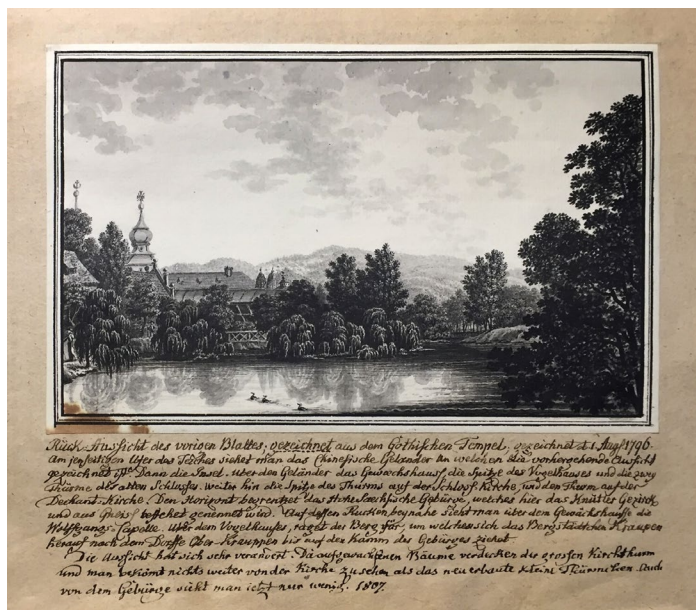 Rück-Aussicht des vorigen Blattes, gezeichnet aus dem Gothischen Tempel, gezeichnet d. 1 Aug. 1796.
Am jenseitigen Ufer des Teiches siehet man das Chinesische Geländer an welchen die vorhergehende Aussicht
gezeichnet ist. Dann die Insel. Über den Geländer das Gewächshaus, die Spitze des Vogelhauses und die zwey
Thürme des alten Schlosses, weiter hin die Spitze des Thurms auf der Schloss Kirche, und den Thurm auf der
Dechant-Kirche. Den Horizont begrenzet das Hohe Sächsische Gebürge, welches hier das
und aus genennet wird. Auf dessen Rücken beynahe sieht man über dem Gewächshause die
Wolffgangs-Capelle. Über dem Vogelhause, raget der Berg für, um welchen sich das Bergstädtchen Kraupen
herauf nach dem Dorfe Ober-Kraupen bis auf den Kamm des Gebürges ziehet.
Die Aussicht hat sich sehr verändert. Die aufgewachsenen Bäume verdecken die grossen Kirchthurm
und man bekömt nichts weiter von der Kirche zu sehen als das neu erbaute kleine Thürmchen. Auch
von dem Gebürge sieht man jetzt nur wenig. 1807.